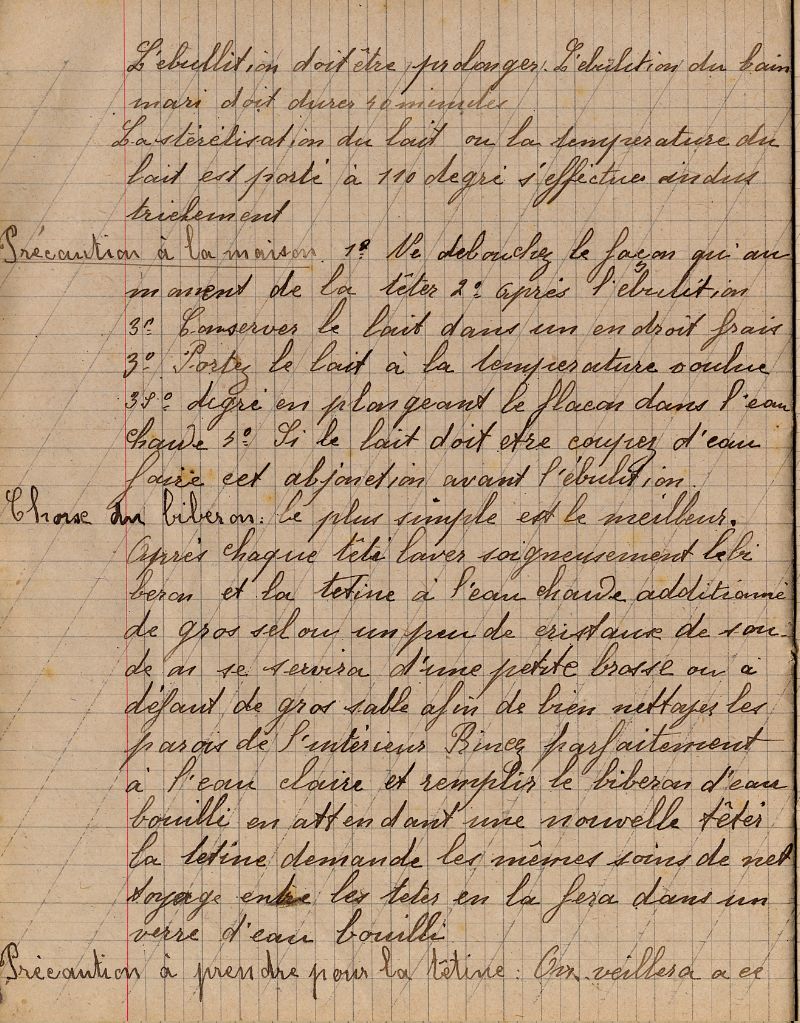 L'ébullition doit être prolonger. L'ebulition du bain
mari doit durer 40 minutes
La stérélisation du lait ou la temperature du
lait est porté à 110 degré s'effectue indus
triellement
Précaution à la maison. 1º Ne debouchez le façon qu'au
moment de la têter 2º après l'ébulition
3º Conserver le lait dans un endroit frais
3º Portez le lait à la temperature voulue
38º degré en plongeant le flacon dans l'eau
chaude 5º Si le lait doit etre coupez d'eau
faire cet abjonction avant l'ébulition.
Choix du biberon: le plus simple est le meilleur.
Après chaque têté laver soigneusement le bi
beron et la tetine à l'eau chaude additionné
de gros sel ou un peu de cristaux de sou-
de on se servira d'une petite brosse ou à
défaut de gros sable afin de bien nettayer les
parois de l'intérieur Rincez parfaitement
à l'eau claire et remplir le biberon d'eau
bouilli en attendant une nouvelle têtér
la tetine demande les mêmes soins de net
toyage entre les teter en la fera dans un
verre d'eau bouilli
Précaution à prendre pour la têtine: On veillera a ce